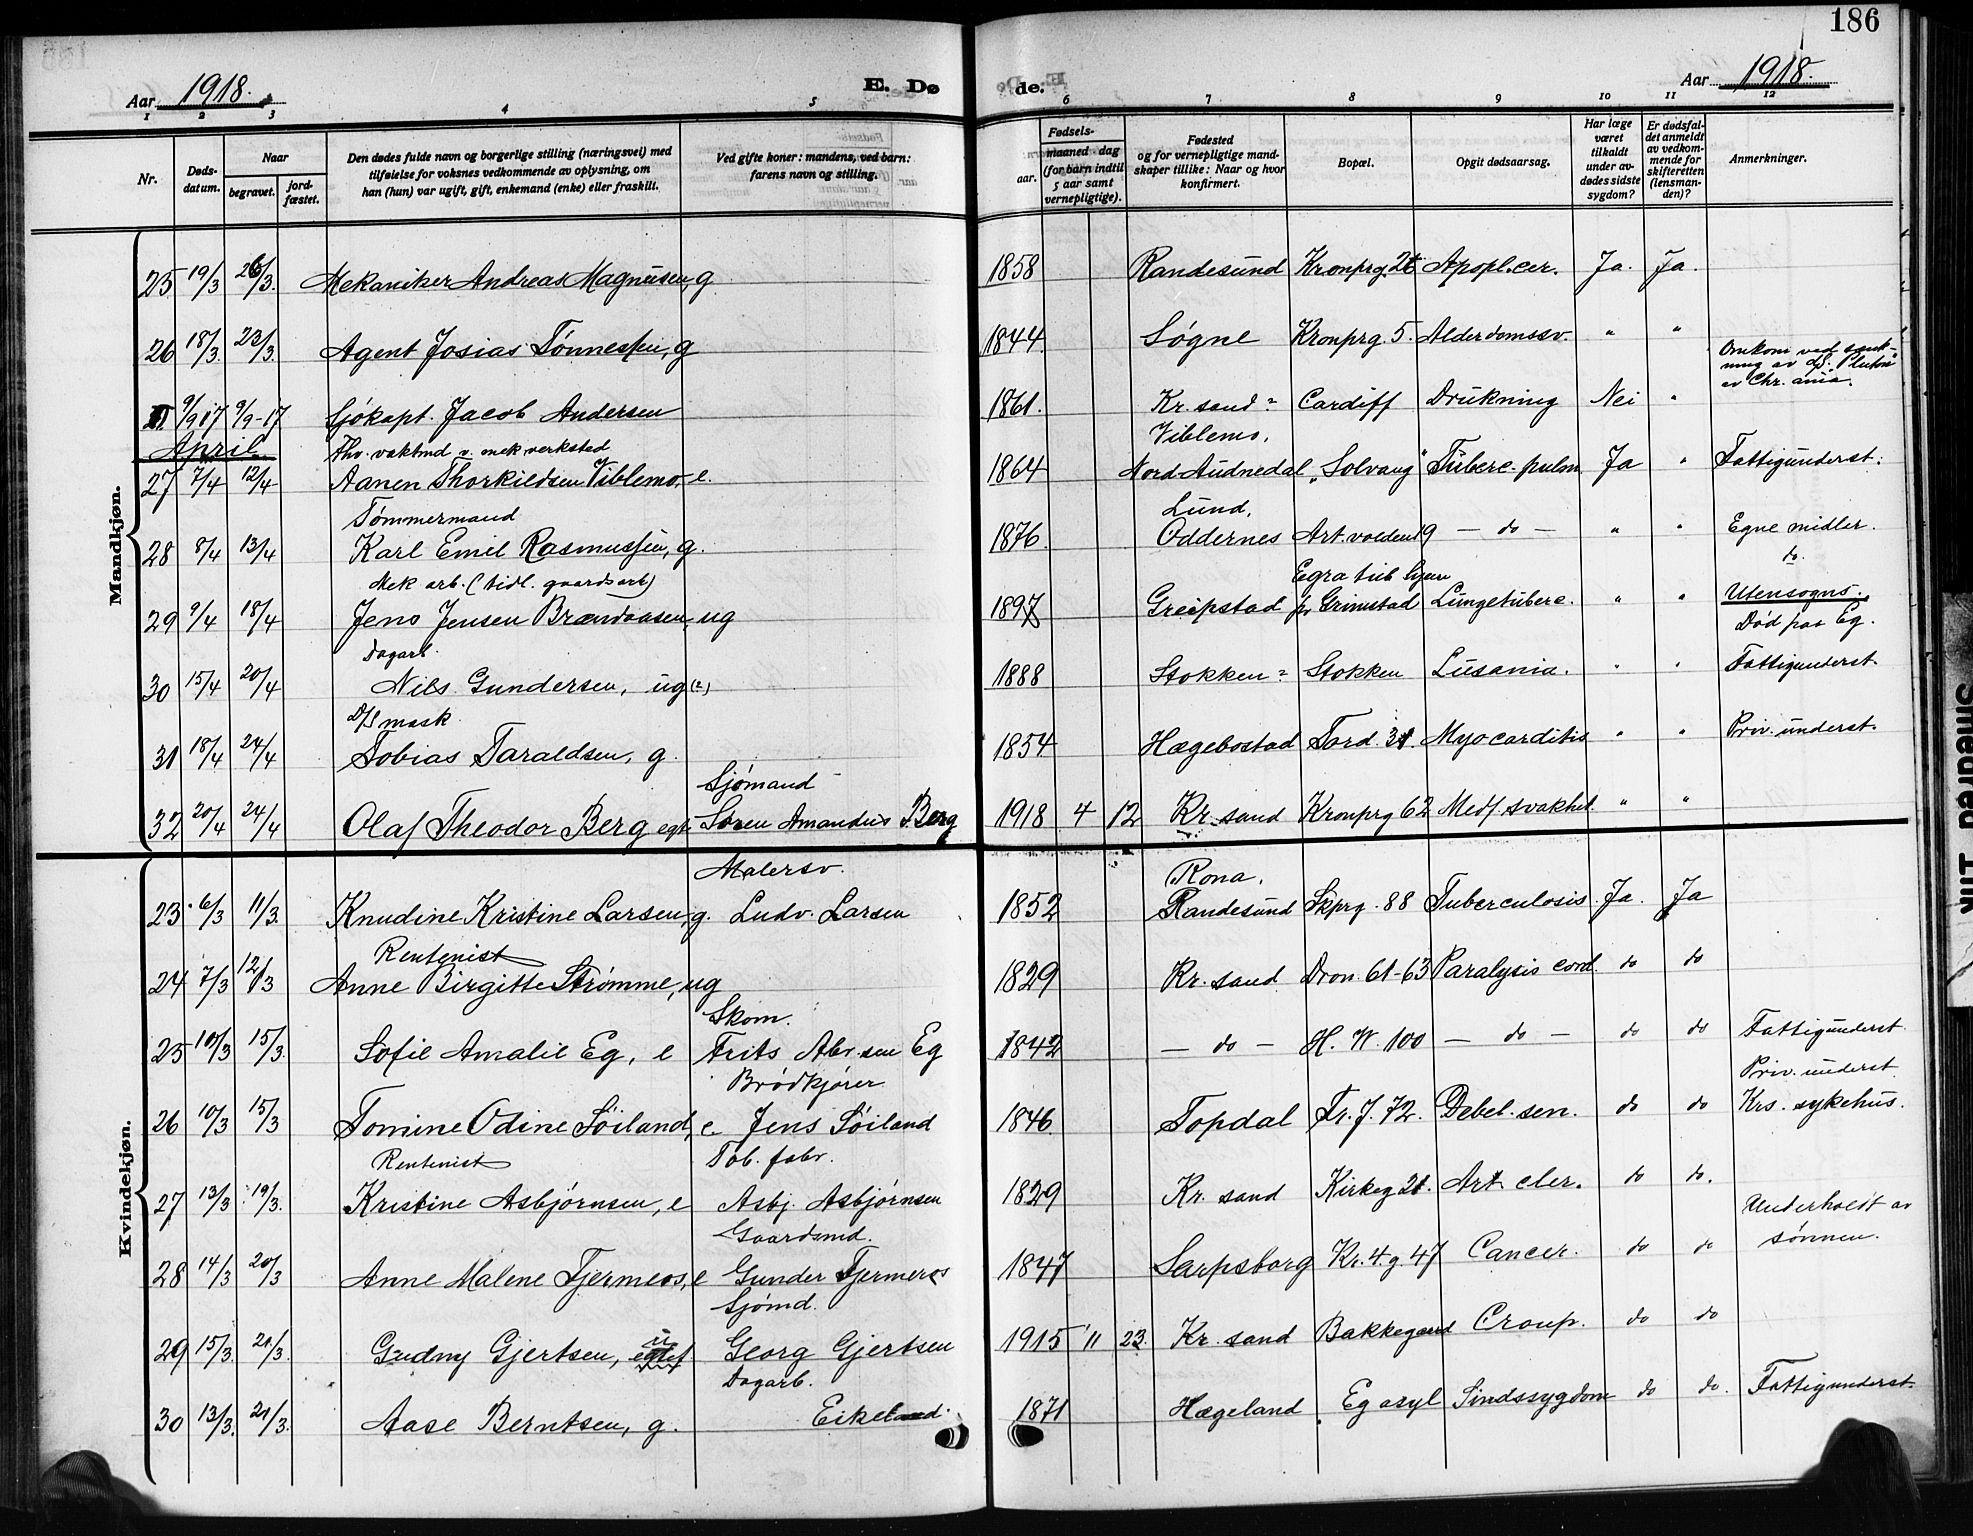 186
Aar 1918. E. Dø de. Aar 1918.
1 2 3 4 5 6 7 8 9 10 11 12
Nr.
Døds-
datum.
Naar
begravet.
jord-
fæstet.
Den dødes fulde navn og borgerlige stilling (næringsvei) med
tilføielse for voksnes vedkommende av oplysning, om
han (hun) var ugift, gift, enkemand (enke) eller fraskilt.
Ved gifte koner: mandens, ved barn:
farens navn og stilling.
Fødsels-
aar.
maaned dag
(for barn indtil
5 aar samt
vernepligtige).
Fødested
og for vernepligtige mand-
skaper tillike: Naar og hvor
konfirmert.
Bopæl.
Opgit dødsaarsag.
Har læge
været
tilkaldt
under av-
dødes sidste
sygdom?
Er dødsfal-
det anmeldt
av vedkom-
mende for
skifteretten
(lensman-
den)?
Anmerkninger.
Mandkjøn.
25 19/3 26/3. Mekaniker Andreas Magnusen, g 1858 Randesund Kronprg. 26 Apopl. cer. Ja. Ja.
26 18/3 23/3. Agent Josias Tønnessen, g 1844. Søgne Kronprg 5. Alderdomssv. " "
Omkom ved senk-
ning av d/s. "Pluton"
av Chr. ania.
9/9 17 9/9-17 Sjøkapt. Jacob Andersen 1861. Kr. sand Cardiff Drukning Nei "
April.
Fhv. vaktmd v. mek verksted Viblemo,
27 7/4 12/4 Aanen Thorkildsen Viblemo, e. 1864 Nord Audnedal "Solvang" Tuberc. pulm Ja " Fattigunderst.
Tømmermand Lund,
28 8/4 13/4 Karl Emil Rasmussen, g. 1876. Oddernes Art. voldens 19 - do - " " Egne midler.
do.
Mek arb. (tidl. gaardsarb) Egra tub hjem
29 9/4 18/4 Jens Jensen Brandaasen, ug 1897 Greipstad pr Grimstad Lungetuberc. " " Utensogns.
Død paa Eg.
Dagarb.
30 15/4 20/4 Nils Gundersen, ug (?) 1888 Stokken Stokken " " Fattigunderst.
D/S mask.
31 18/4 24/4 Tobias Taraldsen, g. 1854 Hægebostad Tord. 31. Myocarditis " " Priv. underst.
Sjømand
32 20/4 24/4 Olaf Theodor Berg egt. Søren Amandus Berg 1918 4 12 Kr. sand Kronprg 62 Medf. svakhet " "
Kvindekjøn.
Malersv. Rona,
23 6/3 11/3. Knudine Kristine Larsen, g. Ludv. Larsen 1852 Randesund Skprg. 88 Tuberculosis Ja. Ja
Rentenist
24 7/3 12/3 Anne Birgitte Strømme, ug 1829 Kr. sand Dron. 61-63 Paralysis cord. do do
Skom.
25 10/3 15/3. Sofie Amalie Eg, e Frits Abr.sen Eg 1842 - do - H. W. 100 - do - do do Fattigunderst.
Brødkjører Priv. underst
26 10/3 15/3 Tomine Odine Søiland, e. Jens Søiland 1846. Topdal Tr. J. 72. Debel. sen. do do Krs. sykehus.
Rentenist Tob. fabr.
27 13/3 19/3. Kristine Asbjørnsen, e Asbj. Asbjørnsen 1829 Kr. sand Kirkeg 21. Art. cler. do do.
Gaardsmd. Underholdt av
sønnen.
28 14/3 20/3 Anne Malene Tjermeos, e Gunder Tjermeros 1847 Sarpsborg Kr. 4. g. 47 Cancer. do do
Sjømd.
29 15/3 21/3. Gudny Gjertsen, u egtef Georg Gjertsen 1915 11 23. Kr. sand Bakkegaard Croup. do do
Dagarb.
30 13/3. 21/3. Aase Berntsen, g. Eikeland. 1871 Hægeland Eg asyl Sindssygdom do do. Fattigunderst.